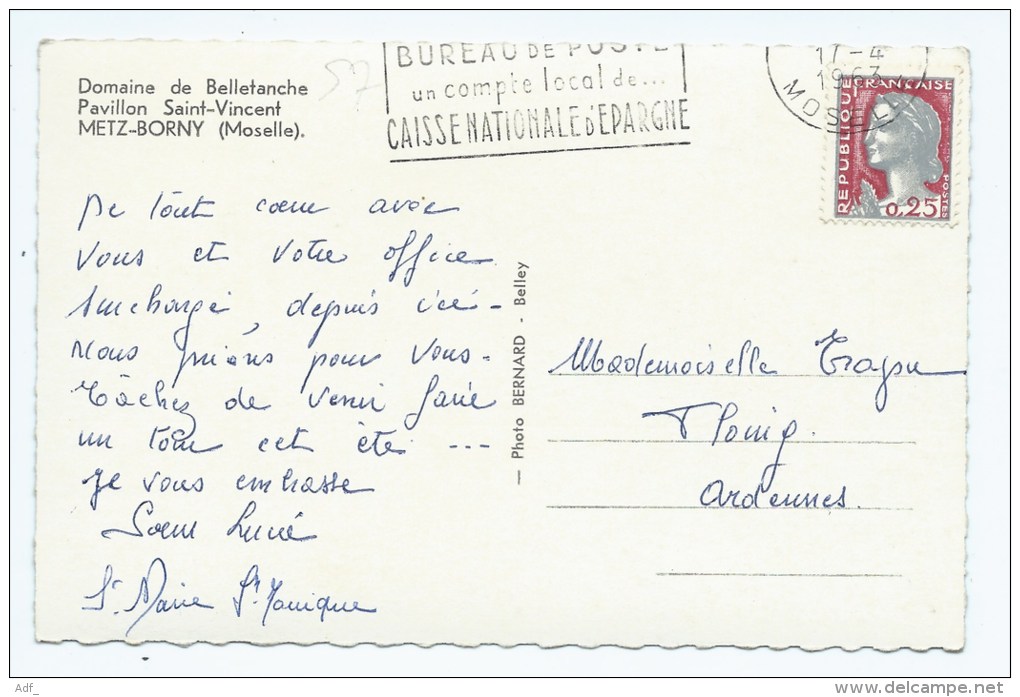 Domaine de Belletanche
Pavillon Saint-Vincent
METZ-BORNY (Moselle).
57
BUREAU DE POSTE
un compte local de...
CAISSE NATIONALE D'ÉPARGNE
17-4
1963
MOSELLE
REPUBLIQUE FRANÇAISE
POSTES
0,25
De tout cœur avec
vous et votre office
surchargé, depuis ici -
Nous prions pour vous -
Tâchez de venir faire
un tour cet été ---
Je vous embrasse
Sœur Lucie
Sr. Marie St. Monique
— Photo BERNARD - Belley
Mademoiselle
Floing.
Ardennes.
Adf_
delcampe.net